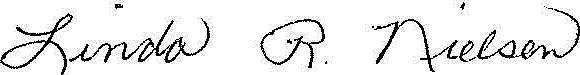 Linda R. Nielsen